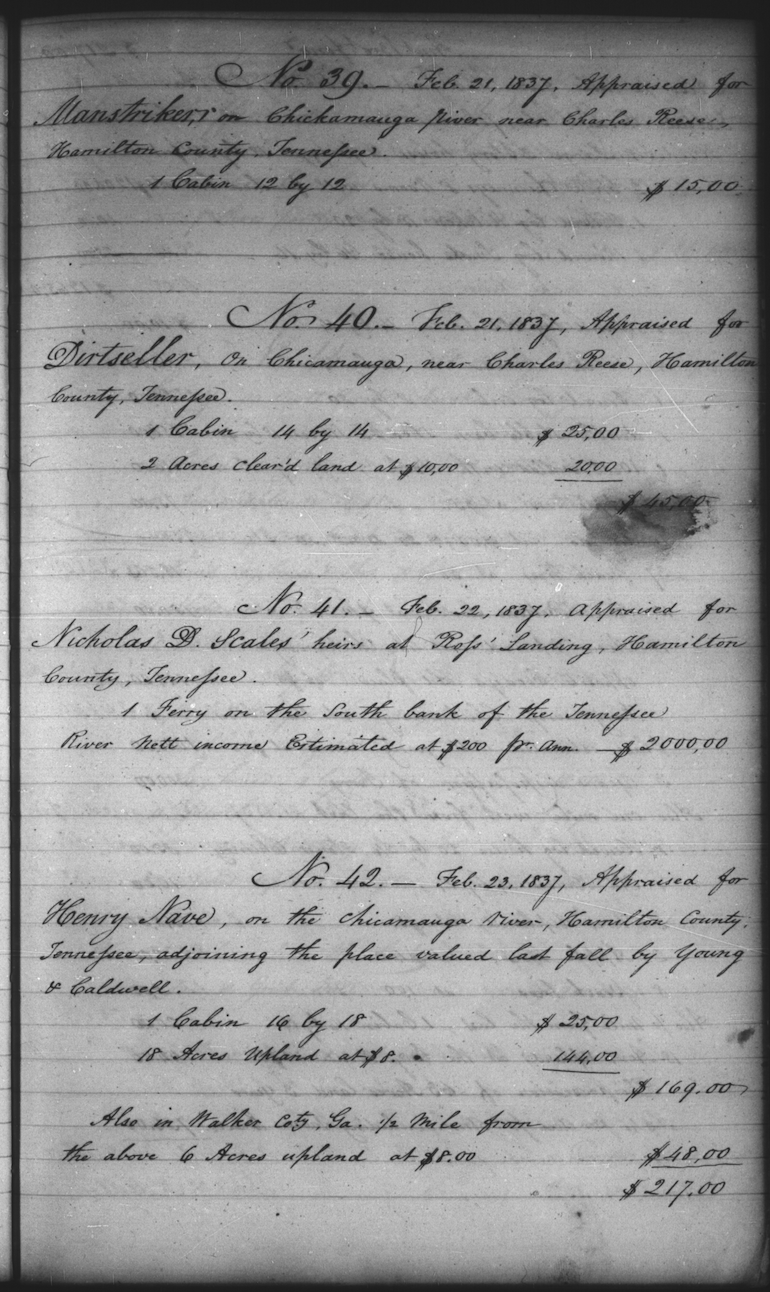 No. 39.— Feb. 21, 1837, Appraised for
Manstriker, on Chickamauga River near Charles Reese,
Hamilton County, Tennessee.
1 Cabin 12 by 12 $15,00
No. 40.— Feb. 21, 1837, Appraised for
Dirtseller, On Chicamauga, near Charles Reese, Hamilton
County, Tennessee.
1 Cabin 14 by 14 $25,00
2 Acres clear'd land at $10,00 20.00
$45.00
No. 41.— Feb. 22, 1837, Appraised for
Nicholas D. Scales' heirs at Ross' Landing, Hamilton
County, Tennessee.
1 Ferry on the South bank of the Tennessee
River Nett income Estimated at $200 pr. Ann. — $2000,00
No. 42.— Feb. 23, 1837, Appraised for
Henry Nave, on the Chicamauga River, Hamilton County,
Tennessee, adjoining the place valued last fall by Young
& Caldwell.
1 Cabin 16 by 18 $25,00
18 Acres Upland at $8. 144,00
$169.00
Also in Walker Coty, Ga. 1/2 Mile from
the above 6 Acres upland at $8.00 $48,00
$217.00